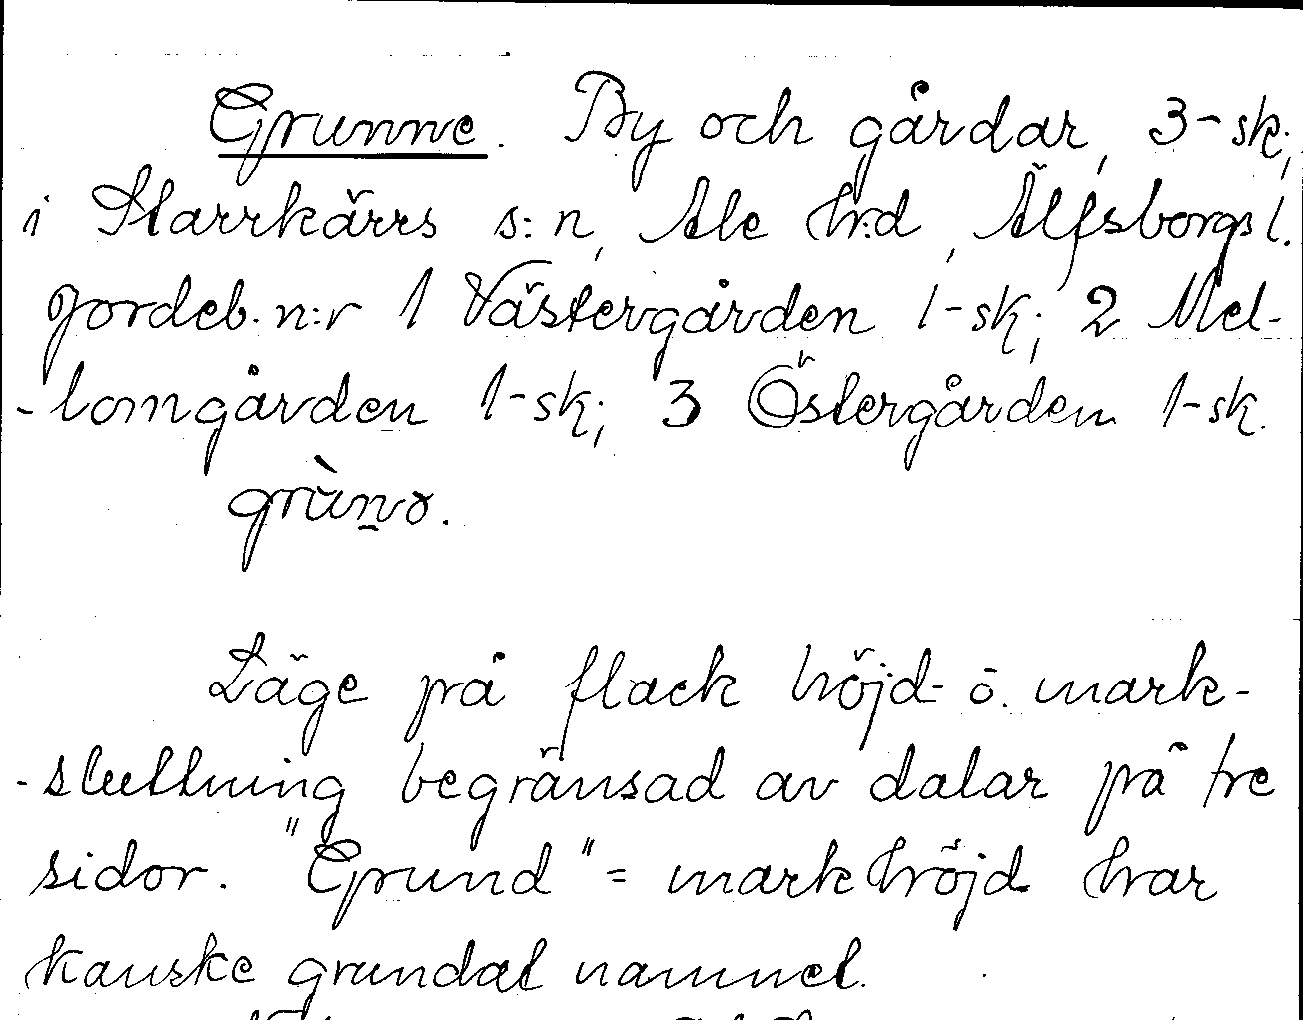 Grunne. By och gårdar, 3-sk;
i Starrkärrs s:n, Ale h:d, Älfsborgs l.
Jordeb. n:r 1 Västergården 1-sk; 2 Mel-
-lomgården 1-sk; 3 Östergården 1-sk.
grùnə.
Läge på flack höjd- o. mark-
-sluttning begränsad av dalar på tre
sidor. "Grund" = markhöjd har
kanske grundat namnet.